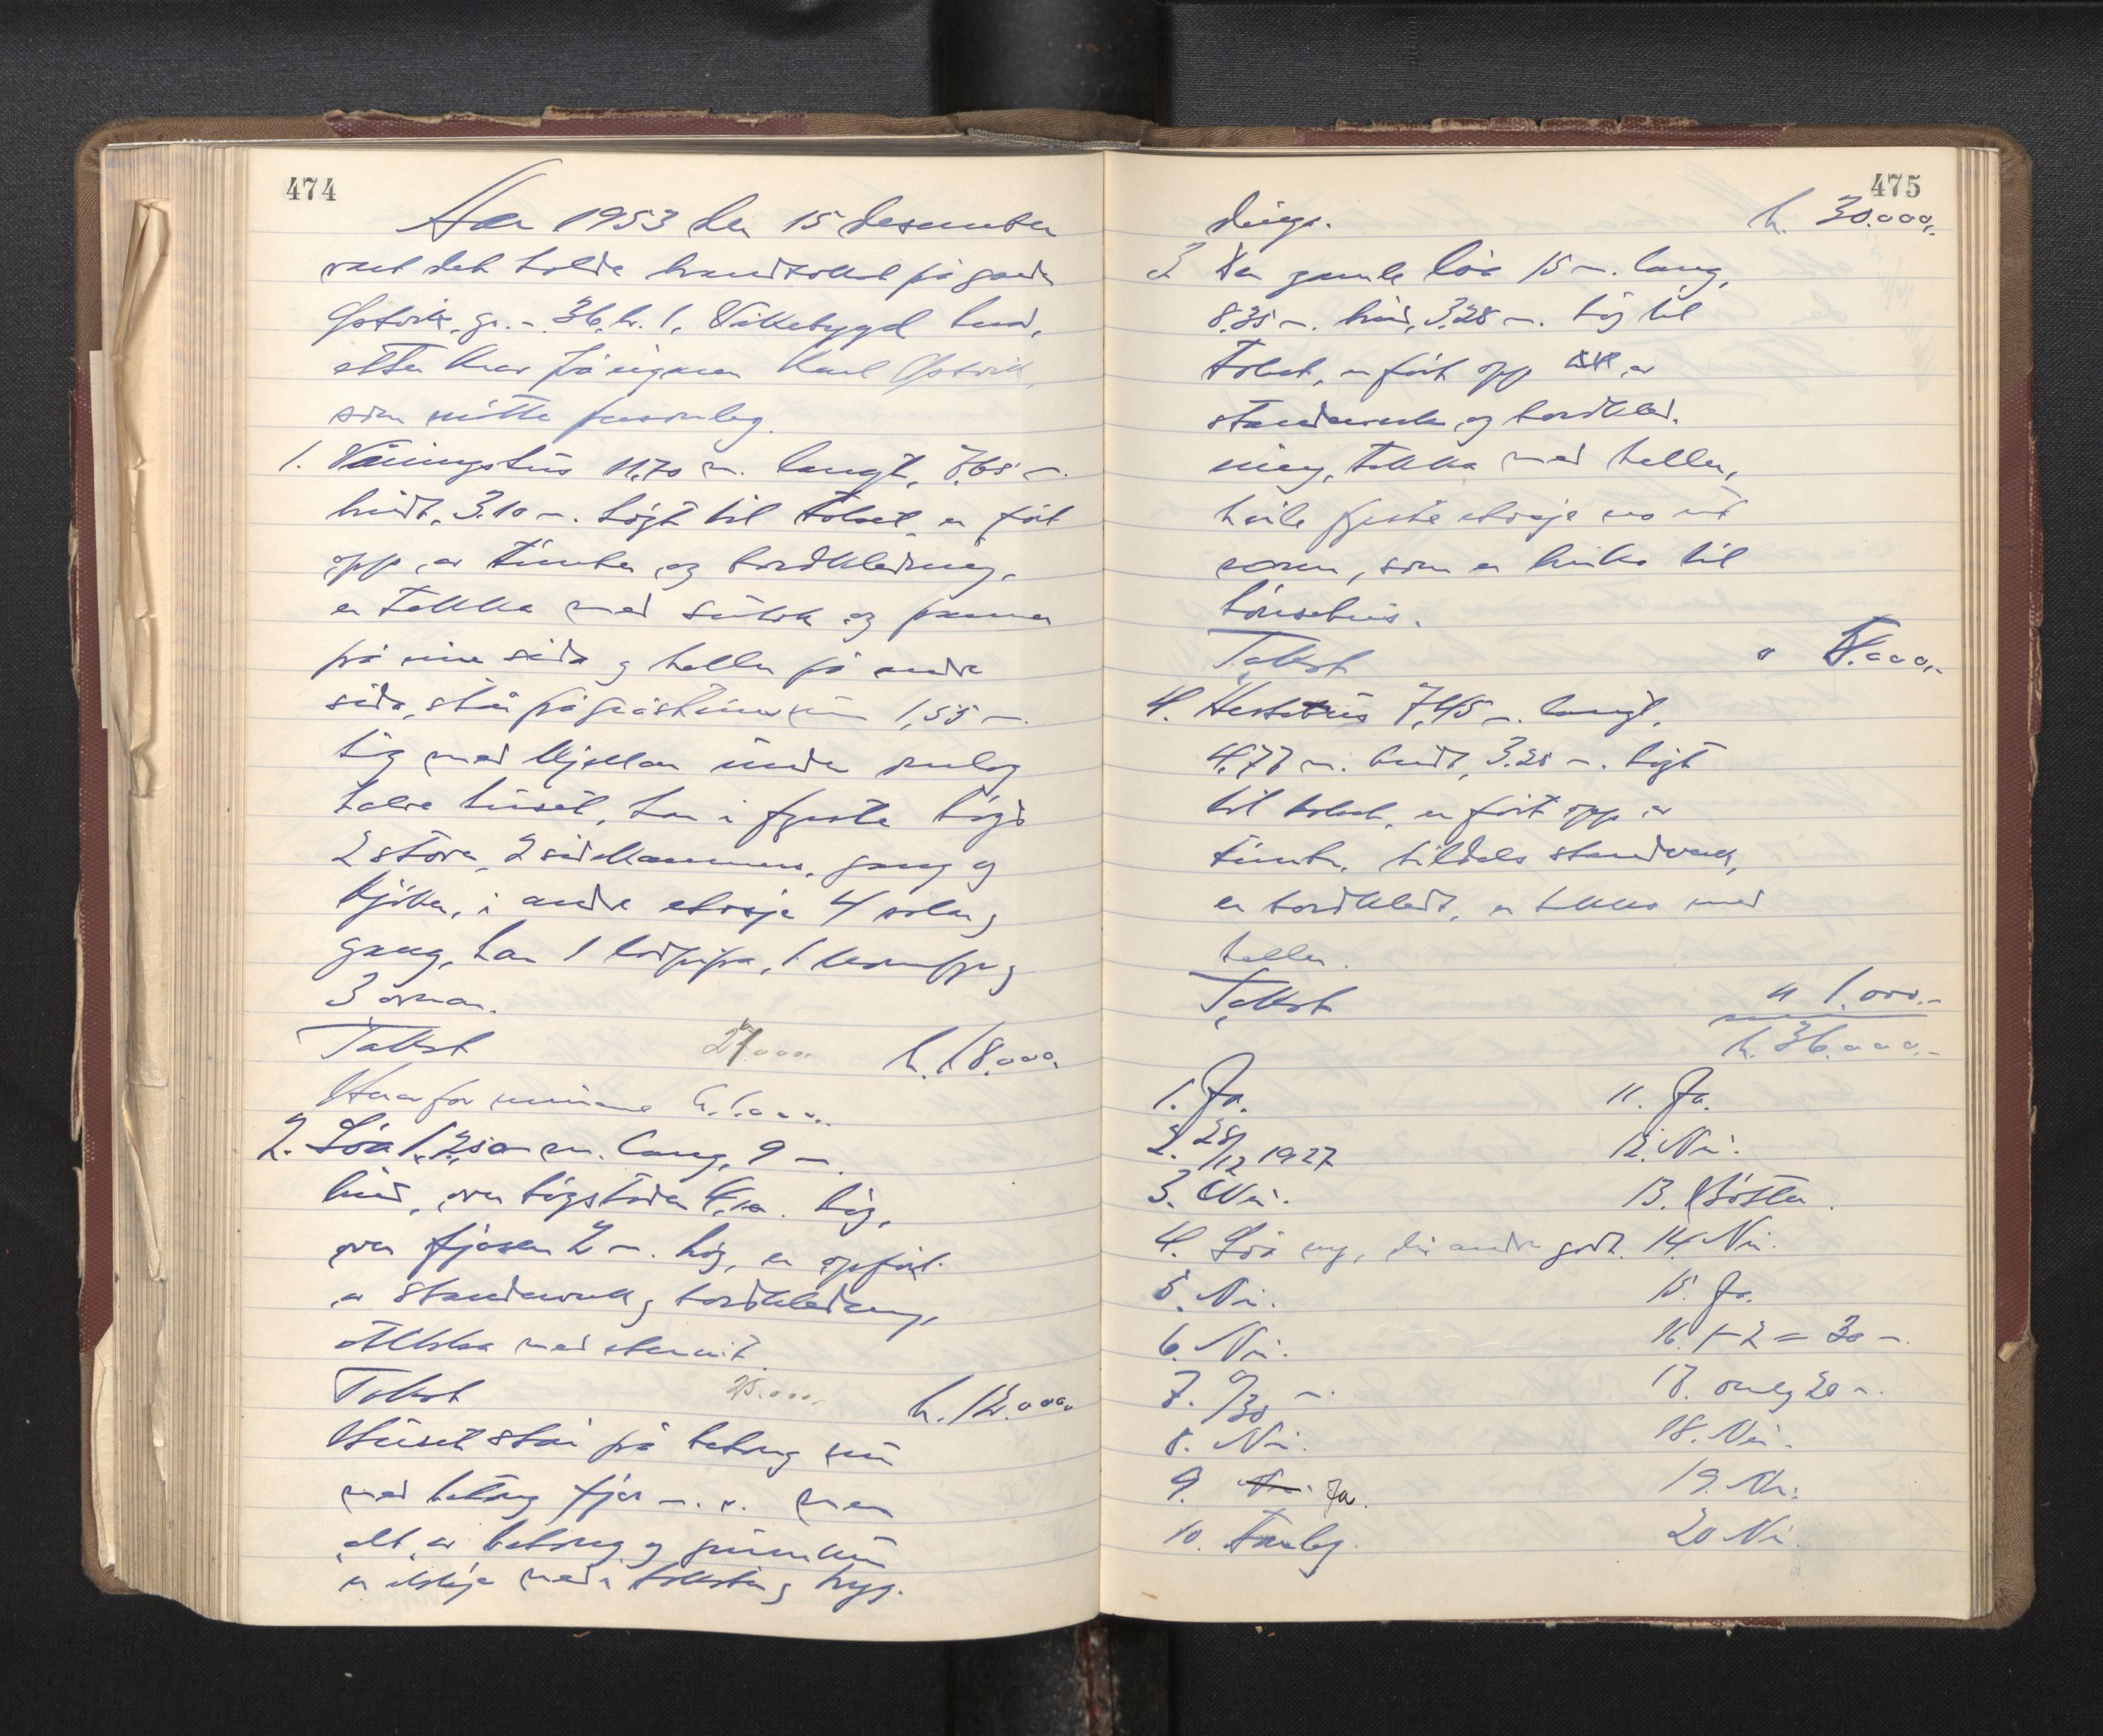 474
Aar 1953 den 15 desember
vart det halde brandtakst på garden
gr. nr. 36, br. 1, Vikebygd herad,
etter krav frå eigaren Karl
som møtte personleg.
1. Våningshus 11,70 m. langt, 7,65 m.
breidt, 3.10 m. høgt til taket, er ført
opp av timber og bordkledning,
er tekka med sutak og panner
på eine sida og heller på andre
sida, står på gråsteinsmur 1,55 m.
høg med kjellar under omlag
halve huset, har i fyrste høgd
2 stover, 2 sidekammers, gang og
kjøken, i andre etasje 4 rom og
gang, har 1 bradpipa, 1 komfyr og
3 omnar.
Takst 27.000. kr. 18.000.
Herav for murane kr. 1.000.
2. Løa 12,50 m. lang, 9 m.
breid, over høgstoda 4,10. høg,
over fjøsen 2 m. høg, er oppført
av standarverk og bordkledning,
tekka med eternit.
Takst 25.000. kr. 12.000
Huset står på betong mur
med betong
alt av betong og grunnmur
er medi taksten og tryg-
475
dinga. kr. 30.000,-
3 Den gamle løa 15 m. lang,
8.35 m. breid, 3.28 m. høg til
taket, er ført opp av
standarverk og bordkled-
ning, tekka med heller,
heile fyrste etasje
som er bruka til
hønsehus.
Takst " 5.000,-
4. Hestehus 7,45 m. langt,
4,77 m. breidt, 3.28 m. høgt
til taket, er ført opp av
timber, tildels standverk,
er bordkledt, er tekka med
heller.
Takst " 1.000.-
kr. 36.000.-
1. Ja. 11. Ja.
2. 28/12 1927 12. Nei.
3. Nei. 13. Bøtter.
4. Løa ny, dei andre godt. 14. Nei.
5. Nei. 15. Ja.
6. Nei. 16. 1-2 = 30 m.
7. 0/30 m. 17. omlag 20 m.
8. Nei. 18. Nei.
9. Nei. Ja. 19. Nei.
10. Farleg. 20 Nei.